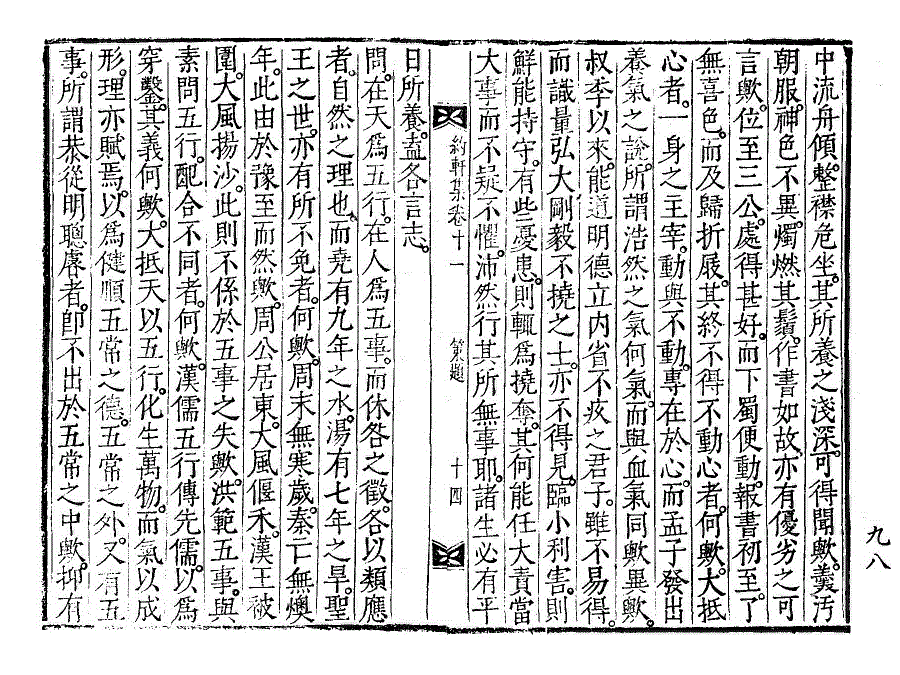 中流舟傾整襟危坐。其所養之淺深。可得聞歟。羲沔
朝服。神色不異。燭燃其鬚。作書如故。亦有優劣之可
言歟。位至三公。處得甚好。而下蜀便動。報書初至。了
無喜色。而及歸折屐。其終不得不動心者。何歟。大抵
心者。一身之主宰。動與不動。專在於心。而孟子發出
養氣之說。所謂浩然之氣何氣。而與血氣同歟異歟。
叔季以來。能道明德立內省不疚之君子。雖不易得。
而識量弘大剛毅不撓之士。亦不得見。臨小利害。則
鮮能持守。有些憂患。則輒爲撓奪。其何能任大責當
大事而不疑不懼。沛然行其所無事耶。諸生必有平
約軒集卷十一 策題 十四
日所養。盍各言志。
問。在天爲五行。在人爲五事。而休咎之徵。各以類應
者。自然之理也。而堯有九年之水。湯有七年之旱。聖
王之世。亦有所不免者。何歟。周末無寒歲。秦亡無燠
年。此由於豫至而然歟。周公居東。大風偃禾。漢王被
圍。大風揚沙。此則不係於五事之失歟。洪範五事。與
素問五行。配合不同者。何歟。漢儒五行傳先儒。以爲
穿鑿。其義何歟。大抵天以五行。化生萬物。而氣以成
形。理亦賦焉。以爲健順五常之德。五常之外。又有五
事。所謂恭從明聰睿者。卽不出於五常之中歟。抑有
九八